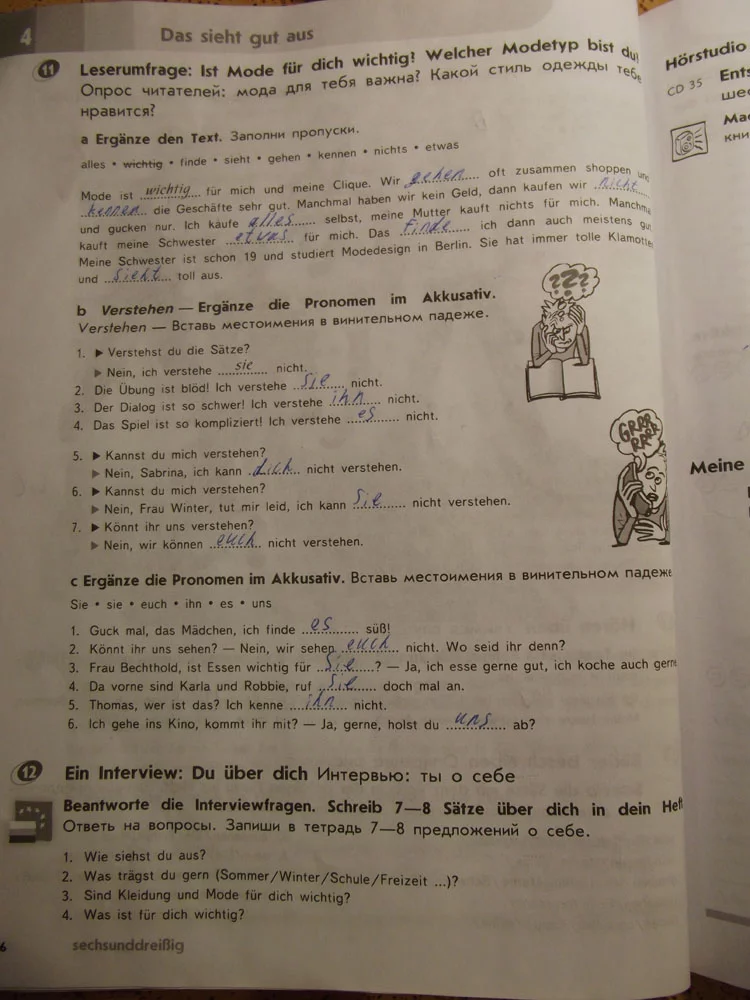 4 Das sieht gut aus
11 Leserumfrage: Ist Mode für dich wichtig? Welcher Modetyp bist du?
Опрос читателей: мода для тебя важна? Какой стиль одежды тебе
нравится?
a Ergänze den Text. Заполни пропуски.
alles • wichtig • finde • sieht • gehen • kennen • nichts • etwas
Mode ist wichtig für mich und meine Clique. Wir gehen oft zusammen shoppen und
und gucken nur. Ich kaufe alles selbst, meine Mutter kauft nichts für mich. Manchm
kennen die Geschäfte sehr gut. Manchmal haben wir kein Geld, dann kaufen wir nicht
kauft meine Schwester etwas für mich. Das finde ich dann auch meistens gut
Meine Schwester ist schon 19 und studiert Modedesign in Berlin. Sie hat immer tolle Klamotten
und sieht toll aus.
b Verstehen — Ergänze die Pronomen im Akkusativ.
Verstehen — Вставь местоимения в винительном падеже.
1. ▶ Verstehst du die Sätze?
▶ Nein, ich verstehe sie nicht.
2. Die Übung ist blöd! Ich verstehe sie nicht.
3. Der Dialog ist so schwer! Ich verstehe ihn nicht.
4. Das Spiel ist so kompliziert! Ich verstehe es nicht.
5. ▶ Kannst du mich verstehen?
▶ Nein, Sabrina, ich kann dich nicht verstehen.
6. ▶ Kannst du mich verstehen?
▶ Nein, Frau Winter, tut mir leid, ich kann Sie nicht verstehen.
7. ▶ Könnt ihr uns verstehen?
▶ Nein, wir können euch nicht verstehen.
???
GRRR RRRR
c Ergänze die Pronomen im Akkusativ. Вставь местоимения в винительном падеже
Sie • sie • euch • ihn • es • uns
1. Guck mal, das Mädchen, ich finde es süß!
2. Könnt ihr uns sehen? — Nein, wir sehen euch nicht. Wo seid ihr denn?
3. Frau Bechthold, ist Essen wichtig für Sie? — Ja, ich esse gerne gut, ich koche auch gern
4. Da vorne sind Karla und Robbie, ruf sie doch mal an.
5. Thomas, wer ist das? Ich kenne ihn nicht.
6. Ich gehe ins Kino, kommt ihr mit? — Ja, gerne, holst du uns ab?
12 Ein Interview: Du über dich Интервью: ты о себе
Beantworte die Interviewfragen. Schreib 7—8 Sätze über dich in dein Heft
Ответь на вопросы. Запиши в тетрадь 7—8 предложений о себе.
1. Wie siehst du aus?
2. Was trägst du gern (Sommer/Winter/Schule/Freizeit ...)?
3. Sind Kleidung und Mode für dich wichtig?
4. Was ist für dich wichtig?
6 sechsunddreißig
Hörstudio
CD 35 Ents
шес
Mac
кни
Meine